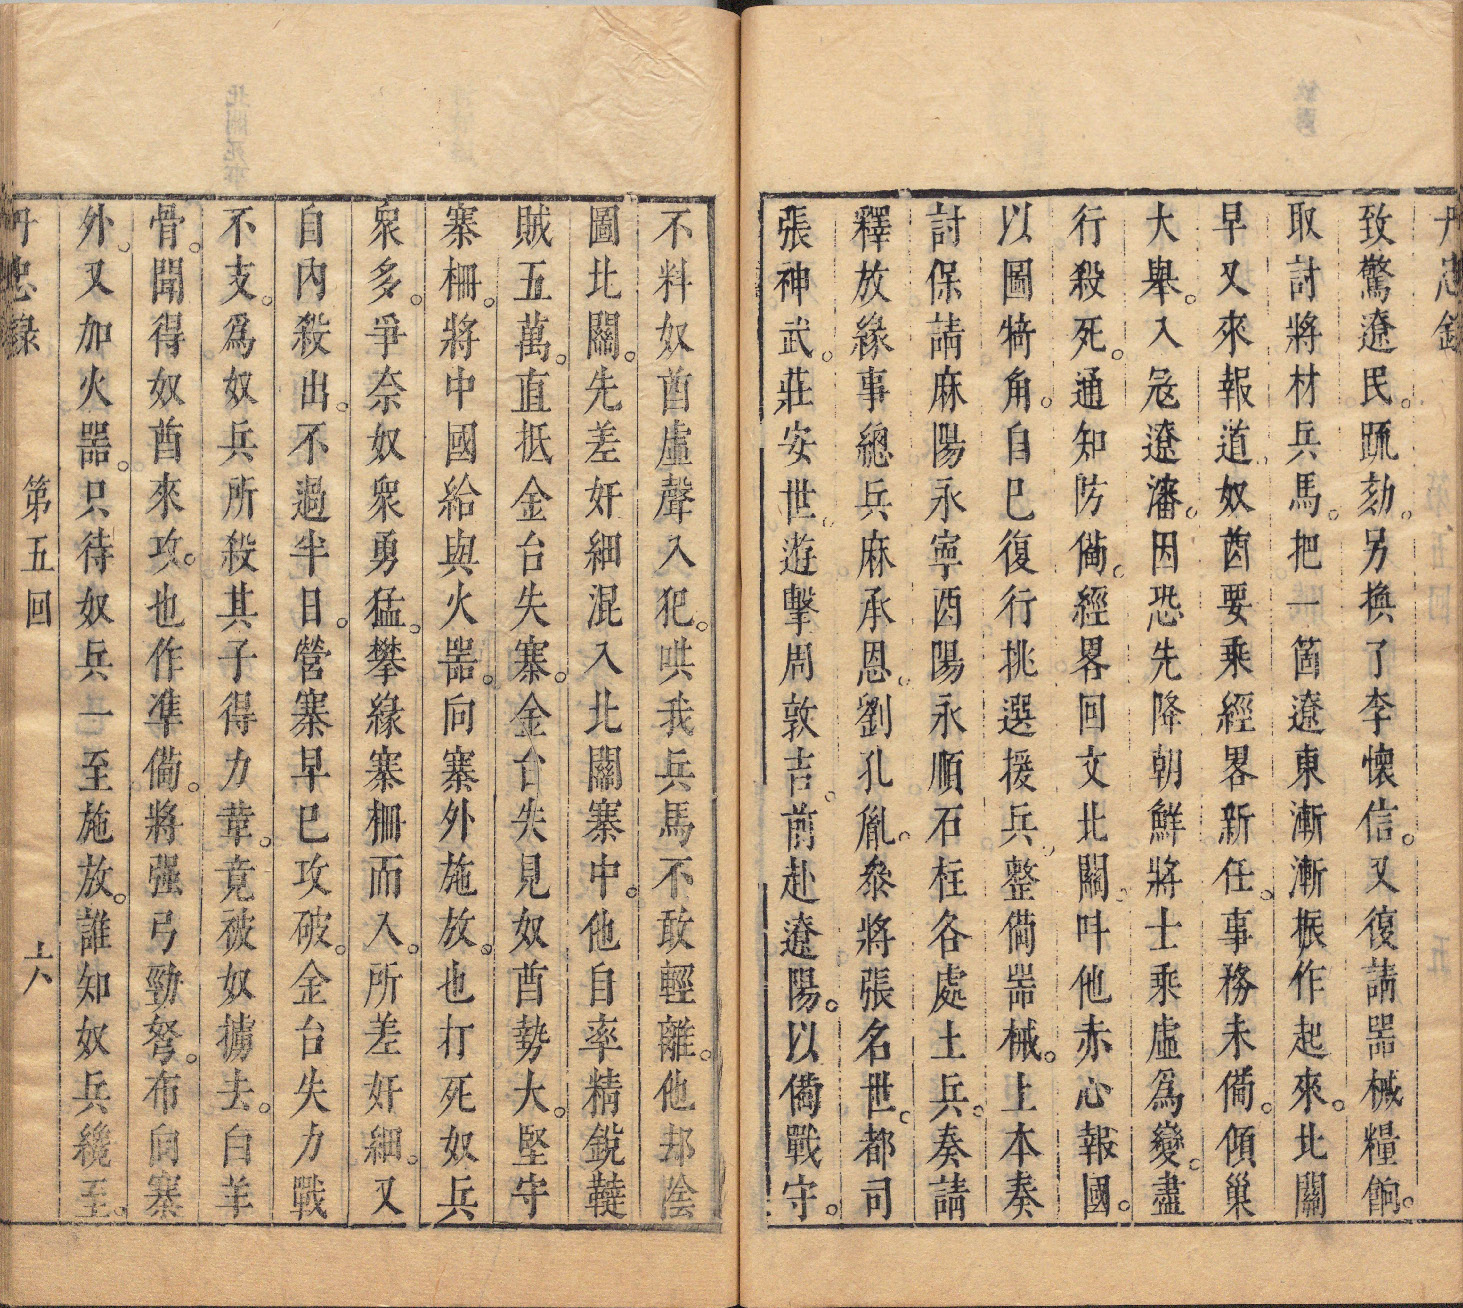 丹忠錄
致驚遼民。疏劾。另換了李懷信。又復請器械糧餉。
取討將材兵馬。把一箇遼東漸漸振作起來。北關
早又來報道。奴酋要乘經畧新任。事務未備。傾巢
大舉。入寇遼瀋。因恐先降朝鮮將士乘虛爲變。盡
行殺死。通知防備。經畧回文北關。呌他赤心報國。
以圖犄角。自已復行挑選援兵。整備噐械。上本奏
討保請麻陽永寧酉陽永順石柱各處土兵。奏請
釋放緣事總兵麻承恩。劉孔胤。叅將張名世。都司
張神武。莊安世。遊擊周敦吉。前赴遼陽。以備戰守。
不料奴酋虛聲入犯。哄我兵馬不敢輕離。他却陰
圖北關。先差奸細混入北關寨中。他自率精銳韃
賊五萬。直抵金台失寨。金台失見奴酋勢大。堅守
寨柵。將中國給與火噐。向寨外施放。也打死奴兵
衆多。爭奈奴衆勇猛。攀緣寨柵而入。所差奸細。又
自內殺出。不過半日。營寨早已攻破。金台失力戰
不支。爲奴兵所殺其子得力葦。竟被奴擄去。白羊
骨。聞得奴酋來攻。也作準備。將强弓勁弩。布向寨
外。又加火噐。只待奴兵一至施放。誰知奴兵纔至。
丹忠錄
第五回
六